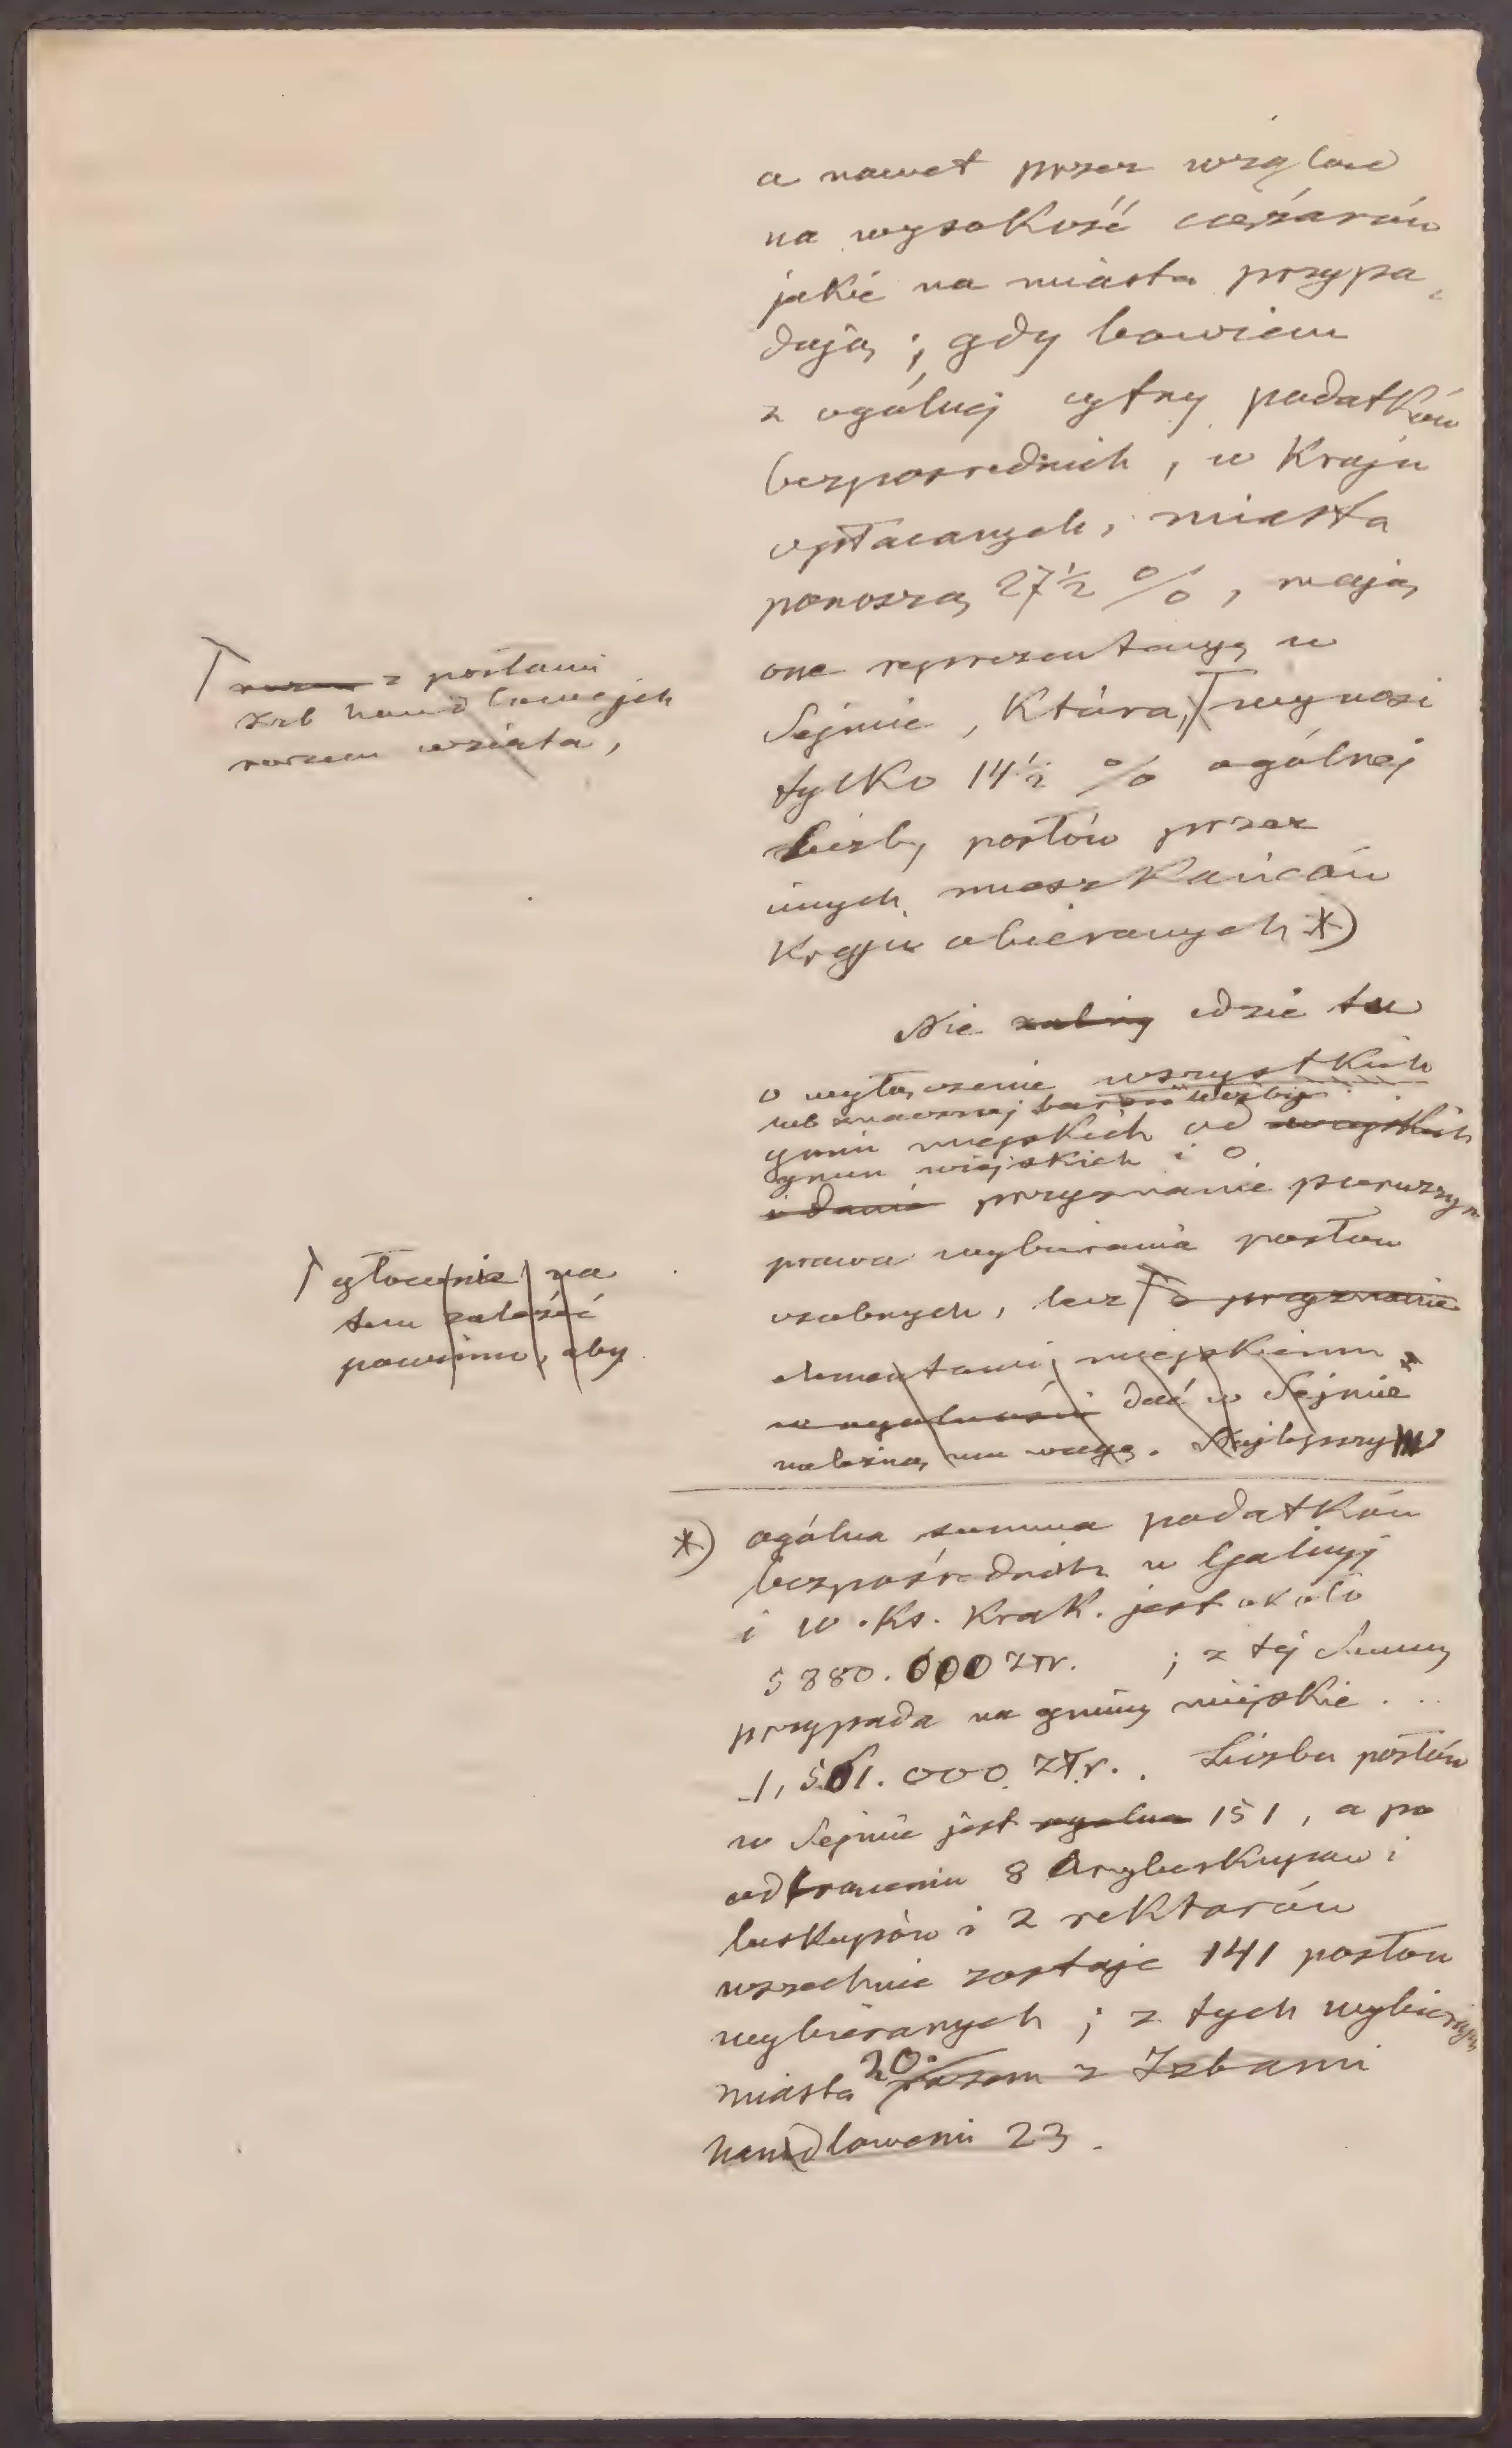 a nawet przez wzgląd
na wysokość ciężarów
jakie na miasta przypa-
dają; gdy bowiem
z ogólnej cyfry podatków
bezpośrednich, w Kraju
opłacanych, miasta
ponoszą 27 1/2 %, mają
one reprezentacyę w
Sejmie, która, wynosi
tylko 14 1/2 % ogólnej
liczby posłów przez
innych mieszkańców
Kraju obieranych *)
razem z posłami
Izb handlowych
razem wzięta,
Nie idzie tu
o wyłączenie wszystkich
lub znacznej bardzo liczby
gmin miejskich od wszystkich
gmin wiejskich i o
i danie przyznanie pierwszym
prawa wybierania posłów
osobnych, lecz o przyznanie
głównie na
tem zależeć
powinno, aby
elementowi miejskiemu
w ogólności dać w Sejmie
należną mu wagę. Najlepszym
*) ogólna summa podatków
bezpośrednich w Galicyj
i w. Ks. Krak. jest około
5880.000 złr. ; z tej Summy
przypada na gminy miejskie . . .
1,561.000 złr. . Liczba posłów
w Sejmie jest ogólna 151, a po
odtrąceniu 8 Arcybiskupów i
biskupów i 2 rektorów
wszechnic zostaje 141 posłów
wybieranych; z tych wybierają
miasta 20. razem z Izbami
handlowemi 23.